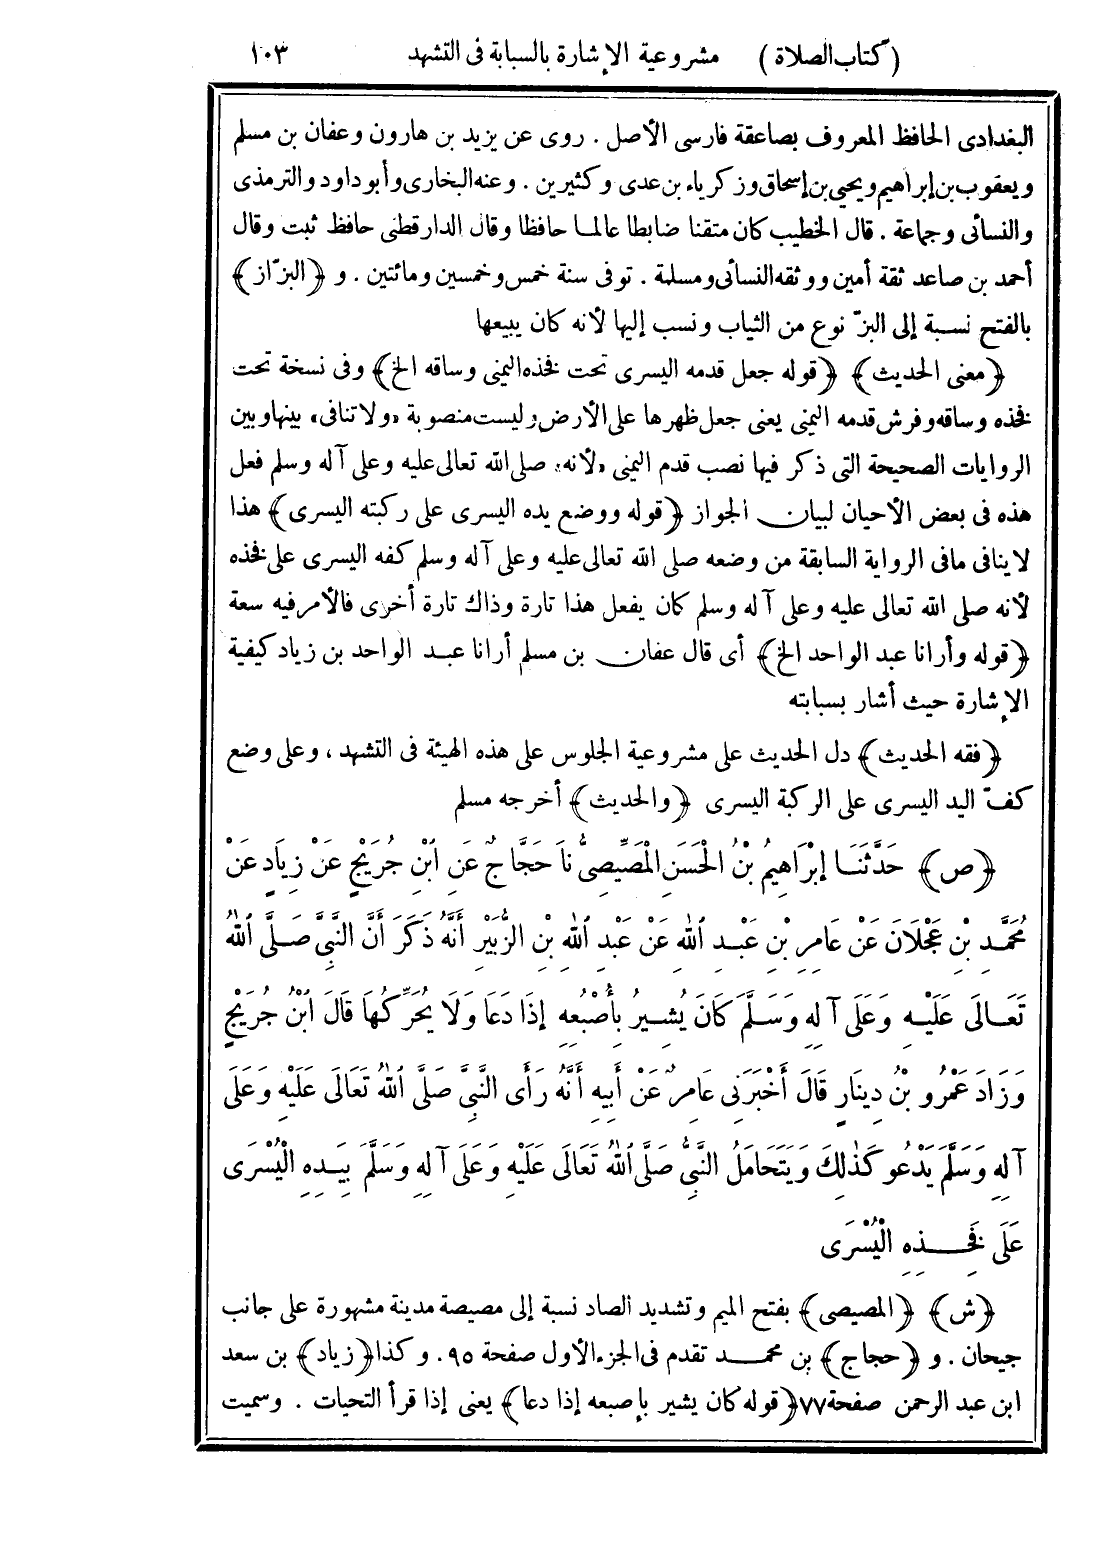 (كتاب الصلاة) مشروعية الإشارة بالسبابة فى التشهد ١٠٣
البغدادى الحافظ المعروف بصاعقة فارسى الأصل . روى عن يزيد بن هارون وعفان بن مسلم
ويعقوب بن إبراهيم ويحيى بن إسحاق وزكرياء بن عدى وكثيرين . وعنه البخارى وأبو داود والترمذى
والنسائى وجماعة . قال الخطيب كان متقنا ضابطا عالما حافظا وقال الدارقطنى حافظ ثبت وقال
أحمد بن صاعد ثقة أمين ووثقه النسائى ومسلمة . توفى سنة خمس وخمسين ومائتين . و ﴿البزّاز﴾
بالفتح نسبة إلى البزّ نوع من الثياب ونسب إليها لأنه كان يبيعها
﴿معنى الحديث﴾ ﴿قوله جعل قدمه اليسرى تحت فخذه اليمنى وساقه الخ﴾ وفى نسخة تحت
فخذه وساقه وفرش قدمه اليمنى يعنى جعل ظهرها على الأرض وليست منصوبة «ولا تنافى» بينها وبين
الروايات الصحيحة التى ذكر فيها نصب قدم اليمنى «لأنه» صلى الله تعالى عليه وعلى آله وسلم فعل
هذه فى بعض الأحيان لبيان الجواز ﴿قوله ووضع يده اليسرى على ركبته اليسرى﴾ هذا
لا ينافى مافى الرواية السابقة من وضعه صلى الله تعالى عليه وعلى آله وسلم كفه اليسرى على فخذه
لأنه صلى الله تعالى عليه وعلى آله وسلم كان يفعل هذا تارة وذاك تارة أخرى فالأمر فيه سعة
﴿قوله وأرانا عبد الواحد الخ﴾ أى قال عفان بن مسلم أرانا عبد الواحد بن زياد كيفية
الإشارة حيث أشار بسبابته
﴿فقه الحديث﴾ دل الحديث على مشروعية الجلوس على هذه الهيئة فى التشهد ، وعلى وضع
كفّ اليد اليسرى على الركبة اليسرى ﴿والحديث﴾ أخرجه مسلم
﴿ص﴾ حَدَّثَنَا إِبْرَاهِيمُ بْنُ الْحَسَنِ الْمَصِّيصِىُّ نَا حَجَّاجٌ عَنِ ابْنِ جُرَيْجٍ عَنْ زِيَادٍ عَنْ
مُحَمَّدِ بْنِ عَجْلَانَ عَنْ عَامِرِ بْنِ عَبْدِ اللهِ عَنْ عَبْدِ اللهِ بْنِ الزُّبَيْرِ أَنَّهُ ذَكَرَ أَنَّ النَّبِىَّ صَلَّى اللهُ
تَعَالَى عَلَيْهِ وَعَلَى آلِهِ وَسَلَّمَ كَانَ يُشِيرُ بِأُصْبُعِهِ إِذَا دَعَا وَلَا يُحَرِّكُهَا قَالَ ابْنُ جُرَيْجٍ
وَزَادَ عَمْرُو بْنُ دِينَارٍ قَالَ أَخْبَرَنِى عَامِرٌ عَنْ أَبِيهِ أَنَّهُ رَأَى النَّبِىَّ صَلَّى اللهُ تَعَالَى عَلَيْهِ وَعَلَى
آلِهِ وَسَلَّمَ يَدْعُو كَذٰلِكَ وَيَتَحَامَلُ النَّبِىُّ صَلَّى اللهُ تَعَالَى عَلَيْهِ وَعَلَى آلِهِ وَسَلَّمَ بِيَدِهِ الْيُسْرَى
عَلَى فَخِذِهِ الْيُسْرَى
﴿ش﴾ ﴿المصيصى﴾ بفتح الميم وتشديد الصاد نسبة إلى مصيصة مدينة مشهورة على جانب
جيحان . و ﴿حجاج﴾ بن محمد تقدم فى الجزء الأول صفحة ٩٥. وكذا ﴿زياد﴾ بن سعد
ابن عبد الرحمن صفحة ٧٧ ﴿قوله كان يشير بإصبعه إذا دعا﴾ يعنى إذا قرأ التحيات . وسميت